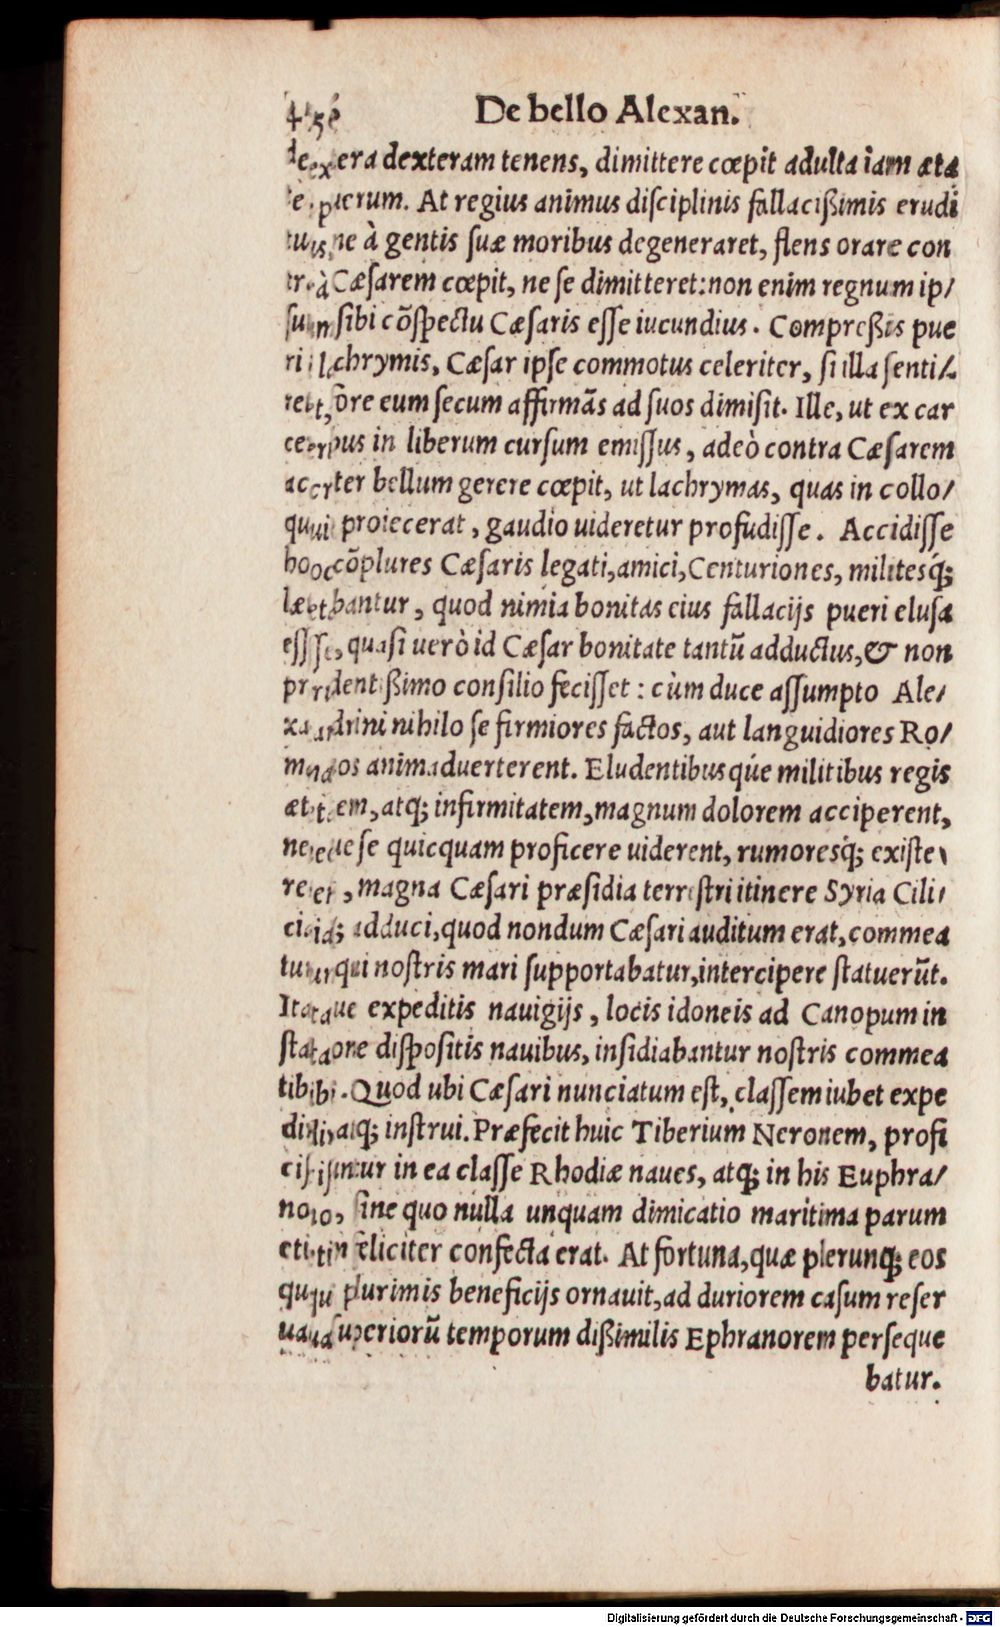 De bello Alexan.
dexteram tenens, dimittere cœpit adulta iam æta
puerum. At regius animus disciplinis fallacißimis erudi
ne à gentis suæ moribus degeneraret, flens orare con
Cæsarem cœpit, ne se dimitteret: non enim regnum ip/
sibi cōspectu Cæsaris esse iucundius. Compreßis pue
ri lachrymis, Cæsar ipse commotus celeriter, si illa senti/
fore eum secum affirmās ad suos dimisit. Ille, ut ex car
in liberum cursum emissus, adeò contra Cæsarem
bellum gerere cœpit, ut lachrymas, quas in collo/
proiecerat, gaudio uideretur profudisse. Accidisse
cōplures Cæsaris legati, amici, Centuriones, militesq́;
quod nimia bonitas eius fallacijs pueri elusa
quasi uerò id Cæsar bonitate tantū adductus, & non
consilio fecisset: cùm duce assumpto Ale/
nihilo se firmiores factos, aut languidiores Ro/
animaduerterent. Eludentibusq́ue militibus regis
atq; infirmitatem, magnum dolorem acciperent,
se quicquam proficere uiderent, rumoresq́; existe
magna Cæsari præsidia terrestri itinere Syria Cili/
adduci, quod nondum Cæsari auditum erat, commea
qui nostris mari supportabatur, intercipere statuerūt.
expeditis nauigijs, locis idoneis ad Canopum in
dispositis nauibus, insidiabantur nostris commea
Quod ubi Cæsari nunciatum est, classem iubet expe
atq; instrui. Præfecit huic Tiberium Neronem, profi
in ea classe Rhodiæ naues, atq; in his Euphra/
sine quo nulla unquam dimicatio maritima parum
feliciter confecta erat. At fortuna, quæ plerunq; eos
plurimis beneficijs ornauit, ad duriorem casum reser
superiorū temporum dißimilis Ephranorem perseque
batur.
Digitalisierung gefördert durch die Deutsche Forschungsgemeinschaft - DFG